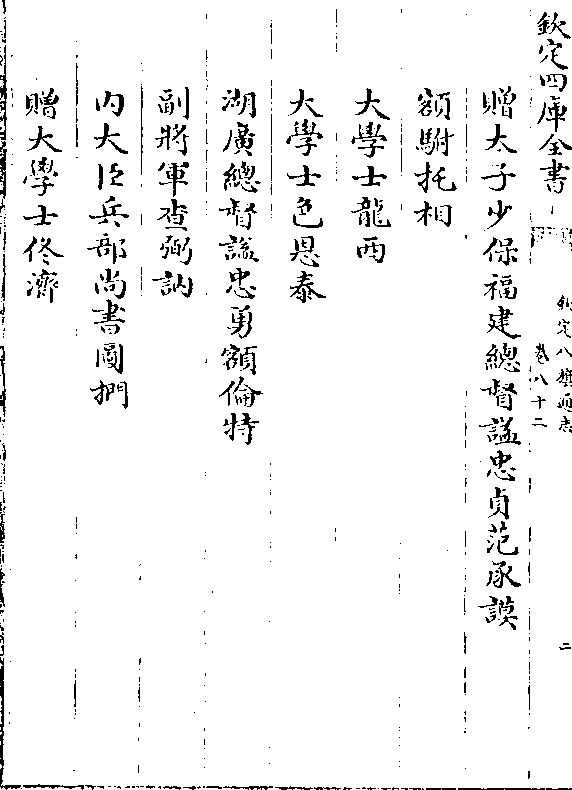 欽定四庫全書
欽定八旗通志
卷八十二
二
贈太子少保福建總督諡忠貞范承謨
額駙托相
大學士龍西
大學士色恩泰
湖廣總督諡忠勇額倫特
副將軍查弼訥
內大臣兵部尚書圖捫
贈大學士佟濟